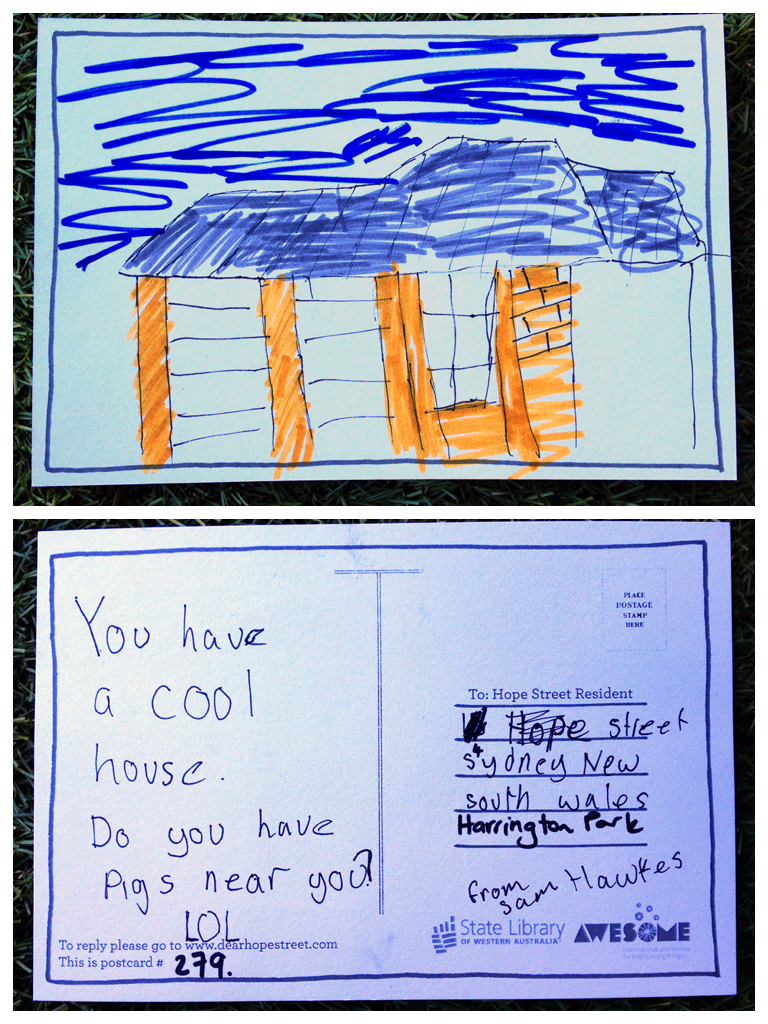 You have
a cool
house.
Do you have
Pigs near you?
LOL
To reply please go to www.dearhopestreet.com
This is postcard # 279.
PLACE
POSTAGE
STAMP
HERE
To: Hope Street Resident
Hope street
sydney New
south wales
Harrington Park
from
sam Hawkes
State Library
OF WESTERN AUSTRALIA
AWESOME